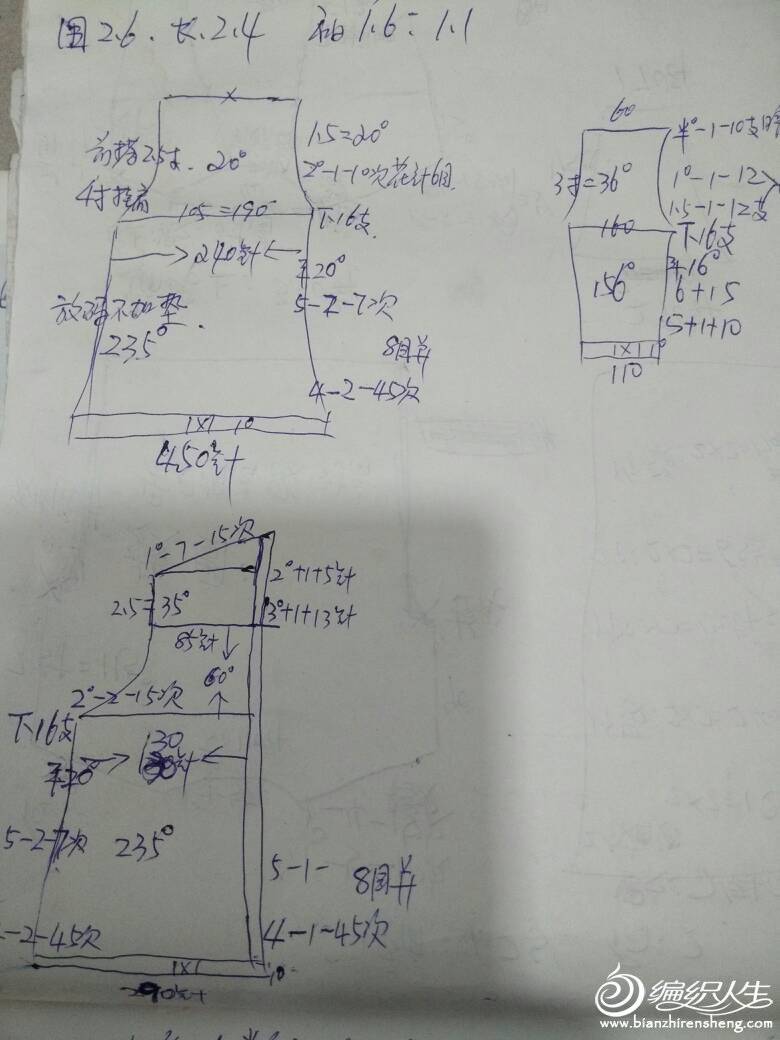 围2.6. 长2.4 袖1.6=1.1
1.5=20°
前撘2.5寸. 20°
2°-1-10次花针6目.
105=190
下16支.
→240针←
平20°
5-2-7次
放
不加垫.
235°
8目并
4-2-45次
1X1 10
450针
60
半°-1-10支
3寸=36°
1°-1-12
1.5-1-12支
160
下16支
156°
平16°
6+15
5+1+10
1X1 1°
110
1°-7-15次
2°+1+5针
2.5=35°
3°+1+13针
85针
60°
2°-2-15次
下16支
平20°
130
针
5-2-7次 235°
5-1- 8目并
-2-45次
4-1-45次
1X1 10
290针
编织人生
www.bianzhirensheng.com